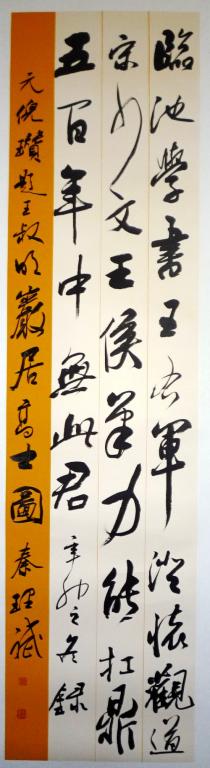 臨池學書王右軍澄懷觀道
宗少文王侯筆力能扛鼎
五百年中無此君辛卯之冬錄
元倪瓚題王叔明巖居高士圖秦理斌